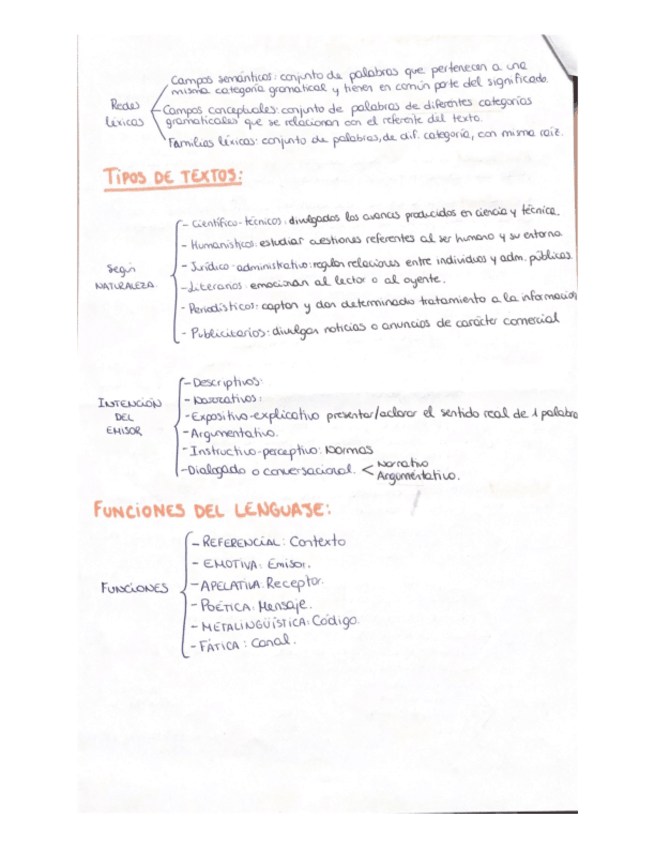 Redes léxicos
Campos semánticos: conjunto de palabras que pertenecen a una
misma categoría gramatical y tienen en común parte del significado.
Campos conceptuales: conjunto de palabras de diferentes categorías
gramaticales que se relacionan con el referente del texto.
Familias léxicas: conjunto de palabras, de dif. categoría, con misma raíz.
TIPOS DE TEXTOS:
Según NATURALEZA
- Científico-técnicos: divulgados los avances producidos en ciencia y técnica.
- Humanísticos: estudiar cuestiones referentes al ser humano y su entorno.
- Jurídico-administrativo: regular relaciones entre individuos y adm. públicas.
- Literarios: emocionan al lector o al oyente.
- Periodísticos: captan y dan determinado tratamiento a la información
- Publicitarios: divulgan noticias o anuncios de carácter comercial
INTENCIÓN DEL EMISOR
- Descriptivos:
- Narrativos:
- Expositivo-explicativo presentar/aclarar el sentido real de 1 palabra
- Argumentativo.
- Instructivo-perceptivo: Normas
- Dialogado o conversacional. < Narrativo
Argumentativo.
FUNCIONES DEL LENGUAJE:
FUNCIONES
- REFERENCIAL: Contexto
- EMOTIVA: Emisor.
- APELATIVA: Receptor.
- POÉTICA: Mensaje.
- METALINGÜÍSTICA: Código.
- FÁTICA: Canal.